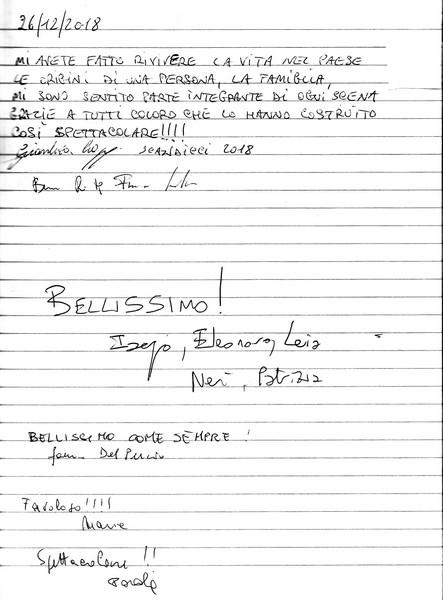 26/12/2018
MI AVETE FATTO RIVIVERE LA VITA NEL PAESE
LE ORIGINI DI UNA PERSONA, LA FAMIGLIA,
MI SONO SENTITO PARTE INTEGRANTE DI OGNI SCENA
GRAZIE A TUTTI COLORO CHE LO HANNO COSTRUITO
COSÌ SPETTACOLARE!!!!
SCANDICCI 2018
BELLISSIMO!
Eleonora, Leia
Neri, Patrizia
BELLISSIMO COME SEMPRE!
Del
Favoloso!!!!
Spettacolare!!